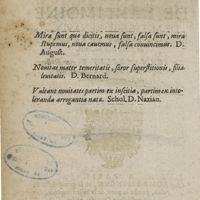 Mira sunt quæ dicitis, noua sunt, falsa sunt, mira
stupemus, noua cauemus, falsa conuincimus. D.
August.
Nouitas mater temeritatis, soror superstitionis, filia
leuitatis. D. Bernard.
Valeant nouitates partim ex inscitia, partim ex into-
leranda arrogantia natæ. Schol. D. Nazian.